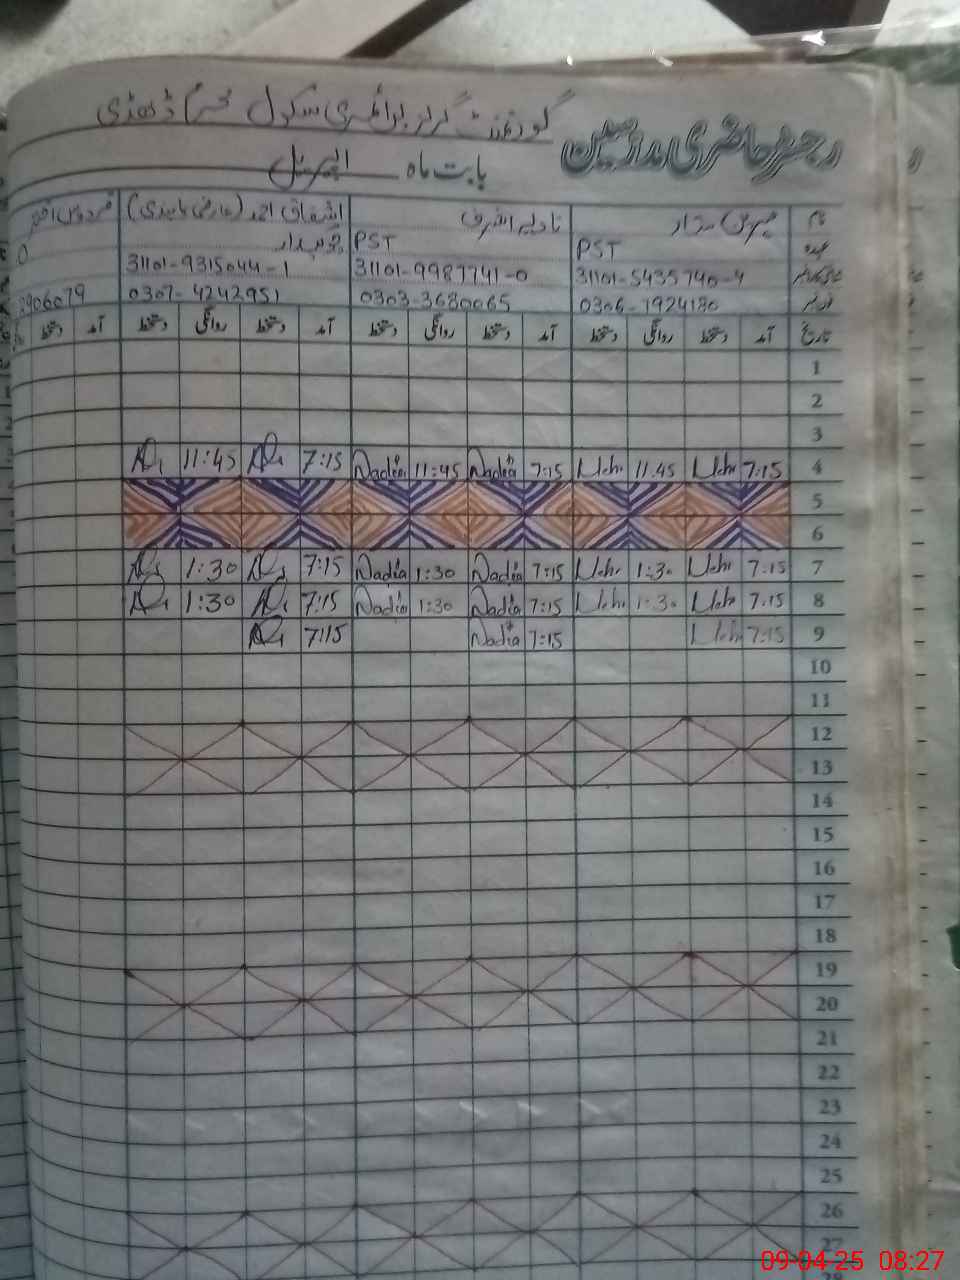 رجسٹر حاضری مدارسین گورنمنٹ گرلز پرائمری سکول
بابت ماہ اپریل
نام نادیہ اشرف اشفاق احمد
عہدہ PST PST چوکیدار
31101-5435740-4 31101-9987741-0 31101-9315044-1
0306-7924180 0303-3680065 0307-4242951 906079
تاریخ آمد دستخط روانگی دستخط آمد دستخط روانگی دستخط آمد دستخط روانگی دستخط آمد دستخط
1
2
3
4 7:15 Mehr 11:45 Mehr 7:15 Nadia 11:45 Nadia 7:15 11:45
5
6
7 7:15 Mehr 1:30 Mehr 7:15 Nadia 1:30 Nadia 7:15 1:30
8 7:15 Mehr 1:30 Mehr 7:15 Nadia 1:30 Nadia 7:15 1:30
9 7:15 Mehr 7:15 Nadia 7:15
10
11
12
13
14
15
16
17
18
19
20
21
22
23
24
25
26
27
28
09-04-25 08:27